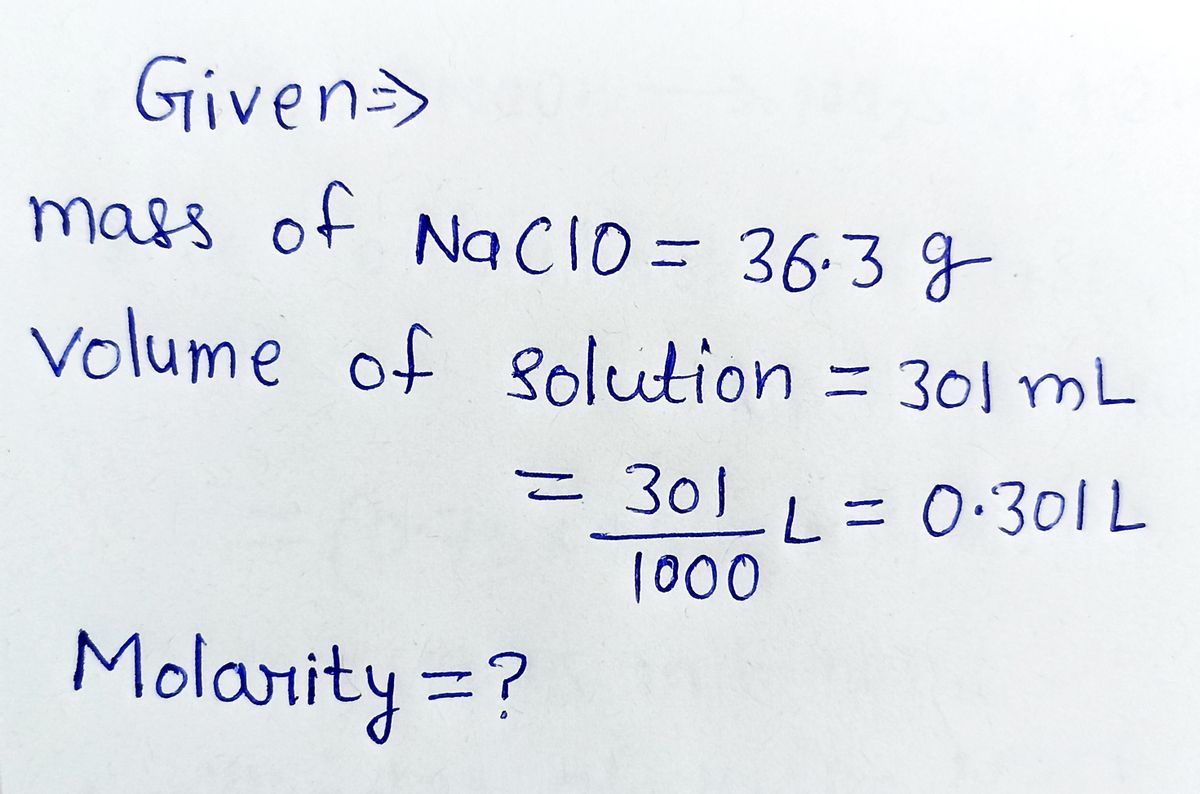 Given⇒
mass of NaClO = 36.3 g
Volume of solution = 301 mL
= 301/1000 L = 0.301 L
Molarity = ?